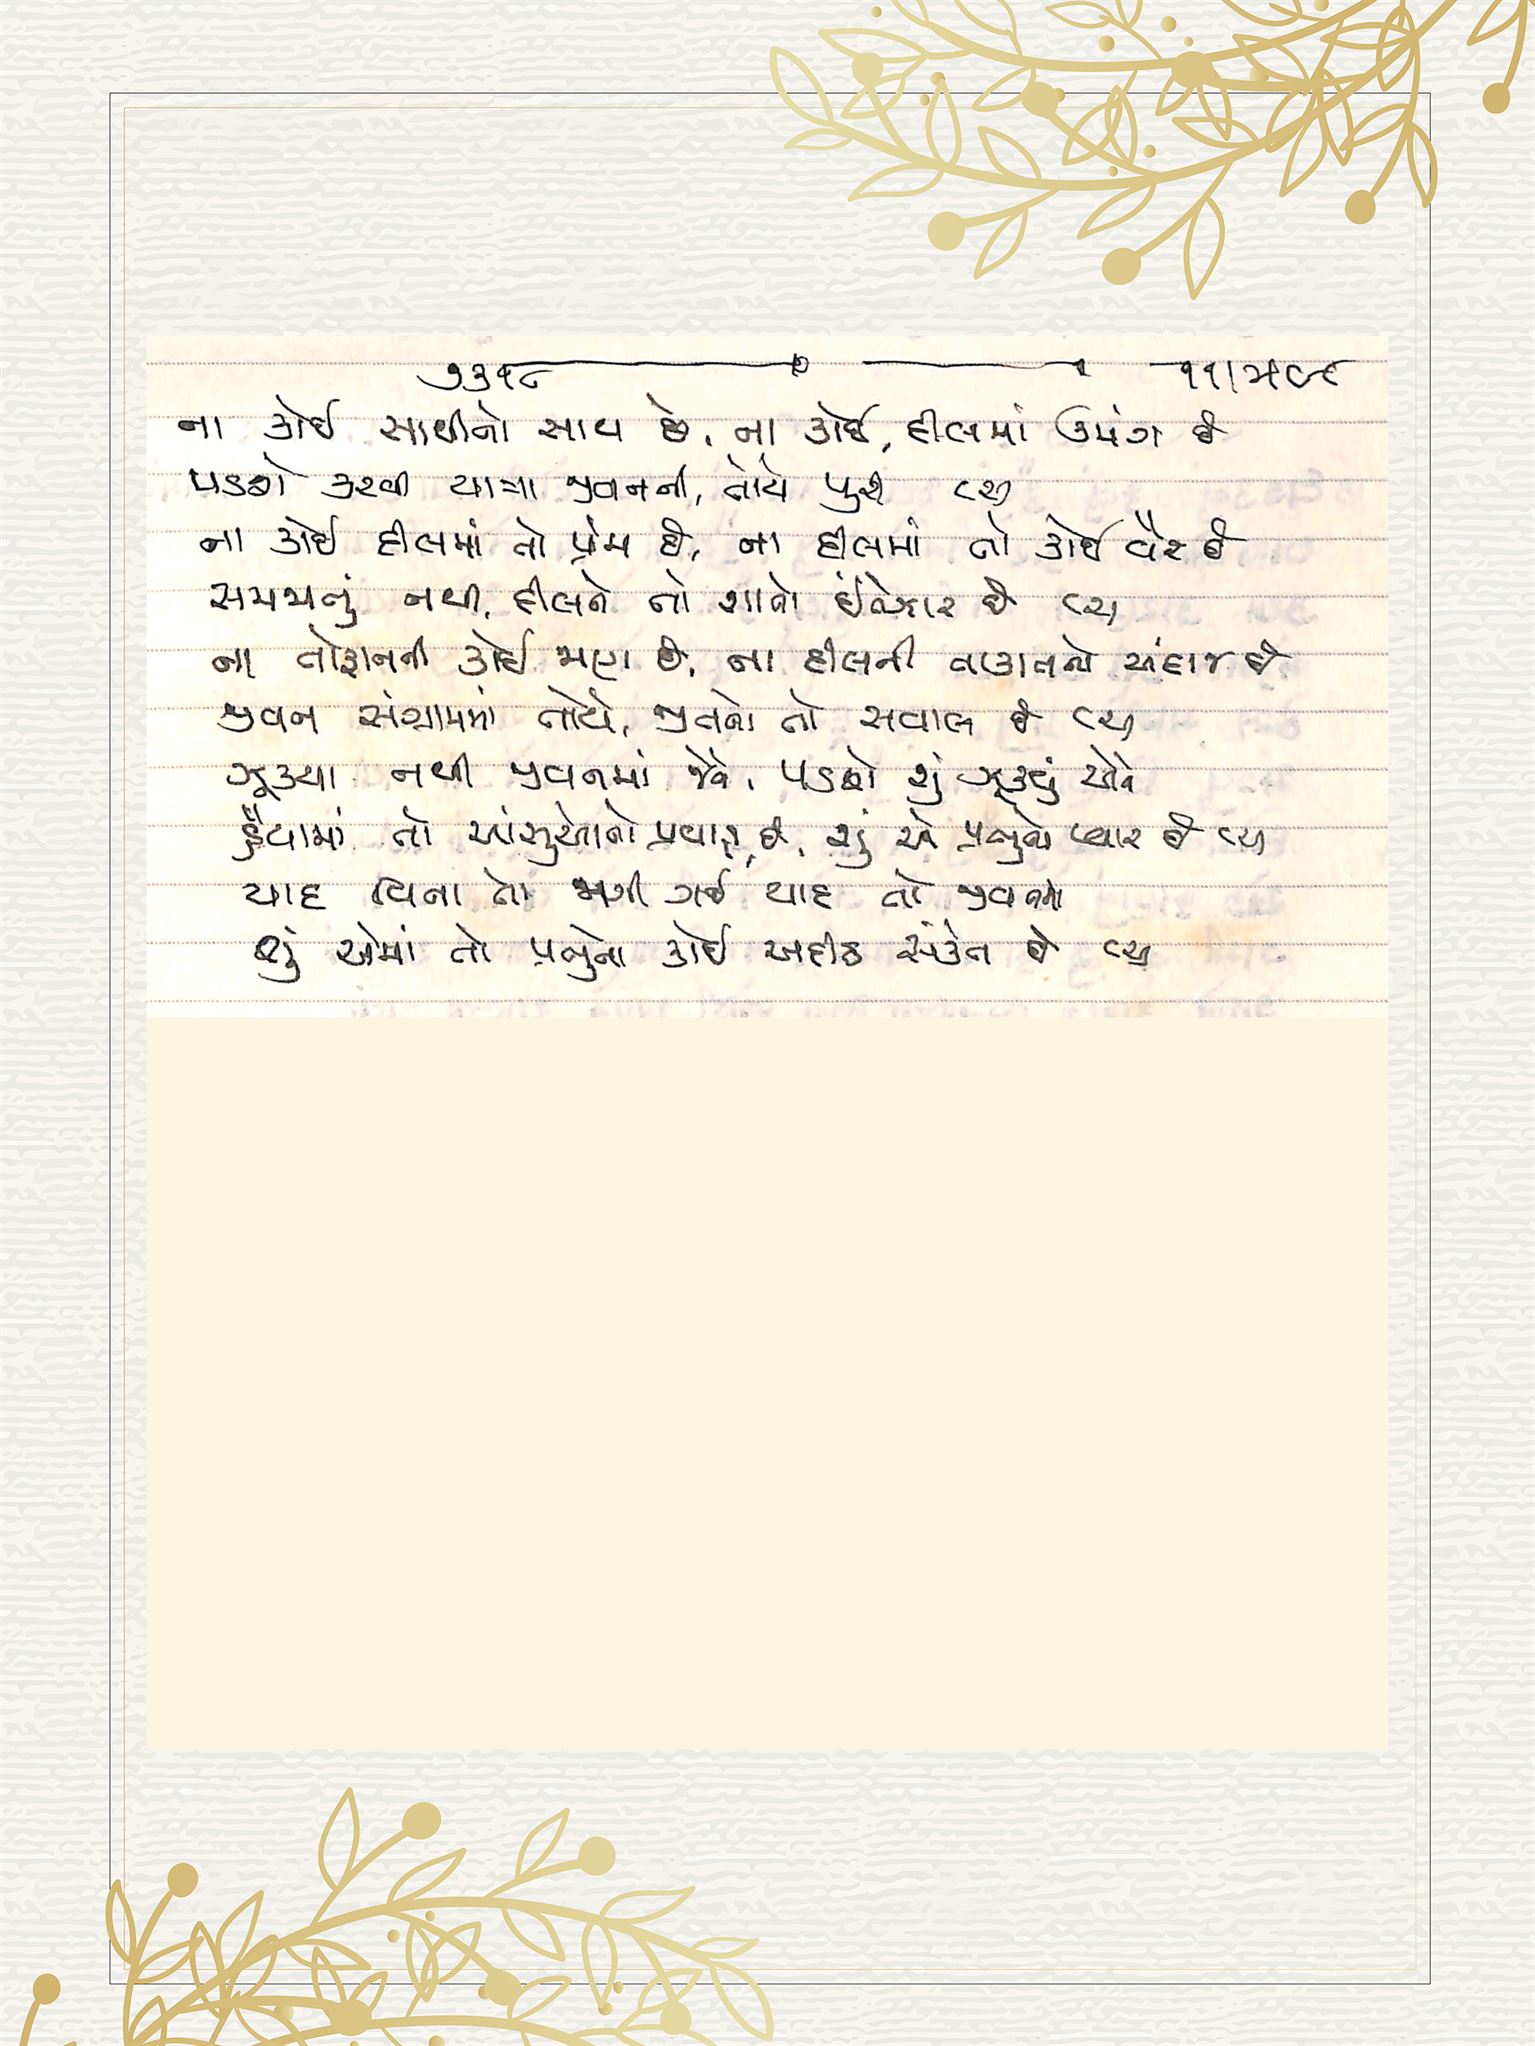 ૭૩૧૮
ના કોઈ સાથીનો સાથ છે, ના કોઈ, દીલમાં ઉમંગ છે
પડશે કરવી યાત્રા જીવનની, તોયે પુરી
ના કોઈ દીલમાં તો પ્રેમ છે, ના દીલમાં તો કોઈ વૈર છે
સમજાતું નથી, દીલને તો શાનો ઈંન્કાર છે
ના તોફાનની કોઈ જાણ છે, ના દીલની તાકાતનો અંદાજ છે
જીવન સંગ્રામમાં તોયે, જીતનો તો સવાલ છે
ઝૂક્યા નથી જીવનમાં જેને, પડશે શું ઝૂકવું એને
હૈયામાં તો આંસુઓનો પ્રવાહ છે, શું એ પ્રભુનો પ્યાર છે
યાદ વિના તો જાગી ગઈ યાદ તો જીવનમાં
શું એમાં તો પ્રભુનો કોઈ અદીઠ સંકેત છે